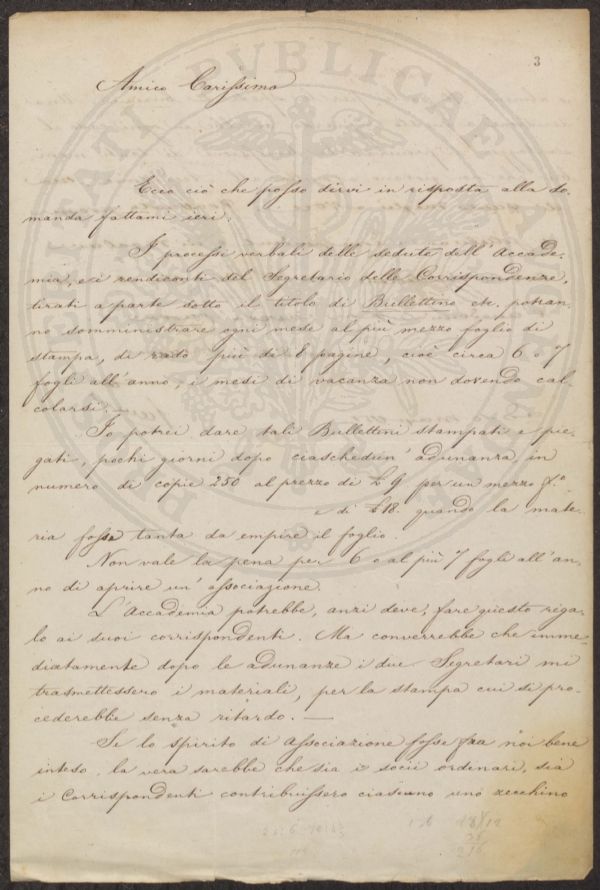 3
Amico Carissimo
Ecco ciò che posso dirvi in risposta alla do
manda fattami ieri.
I processi verbali delle sedute dell'Accade-
mia, e i rendiconti del Segretario delle Corrispondenze,
tirati a parte sotto il titolo di Bullettino etc. potran-
no somministrare ogni mese al più mezzo foglio di
stampa, di rado più di 8 pagine, cioè circa 6 o 7
fogli all'anno, i mesi di vacanza non dovendo cal
colarsi. —
Io potrei dare tali Bullettini stampati e pie-
gati, pochi giorni dopo ciaschedun' adunanza in
numero di copie 250 al prezzo di £ 9 per un mezzo f.o
e di £ 18. quando la mate-
ria fosse tanta da empire il foglio.
Non vale la pena per 6 o al più 7 fogli all'an-
no di aprire un' associazione.
L'Accademia potrebbe, anzi deve, fare questo rega-
lo ai suoi corrispondenti. Ma converrebbe che imme-
diatamente dopo le adunanze i due Segretari mi
trasmettessero i materiali, per la stampa cui si pro-
cederebbe senza ritardo. —
Se lo spirito di associazione fosse fra noi bene
inteso, la vera sarebbe che sia i socii ordinari, sia
i Corrispondenti contribuissero ciascuno uno zecchino